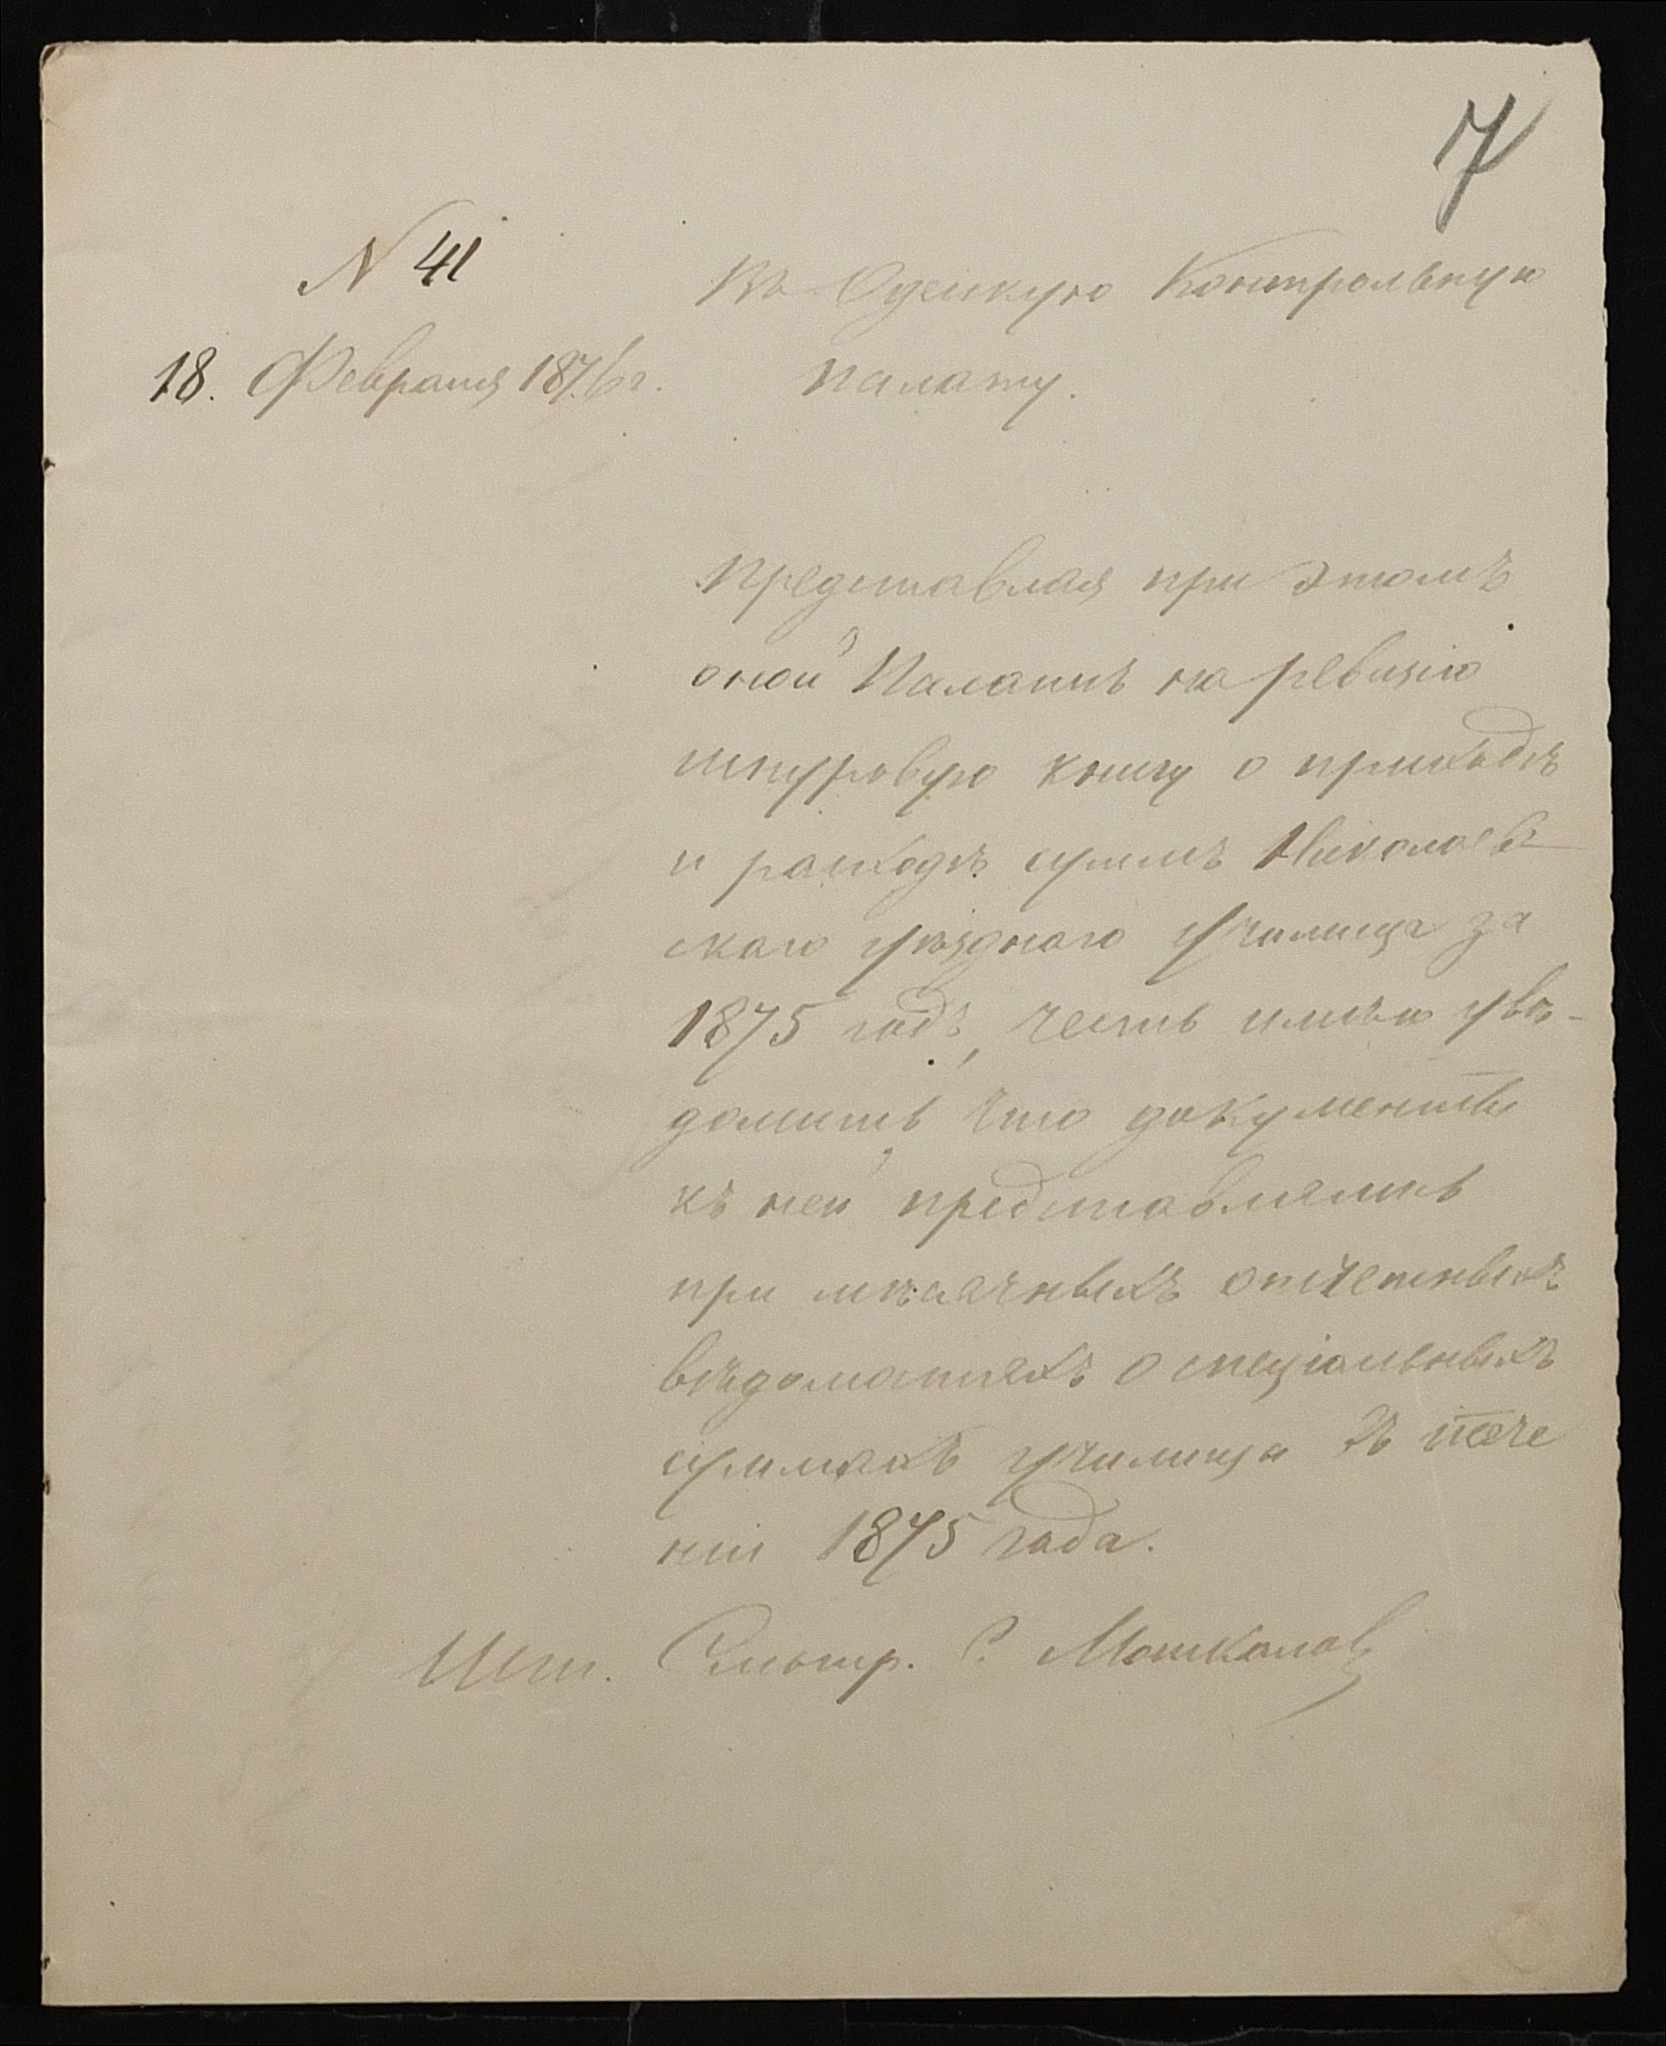 7
N 41
Въ Одескую Контрольную
18. Февраля 1876 г.
палату.
Представляя при этомъ
оной Палатѣ на ревизію
шнуровую книгу о приходѣ
и расходѣ суммъ Николаев
скаго уѣзднаго Училища за
1875 годъ, честь имѣю увѣ-
домить, что документы
къ ней представлялись
при мѣсячныхъ отчетныхъ
вѣдомостяхъ о спеціальныхъ
суммахъ училища въ тече
ніи 1875 года.
Шт. Смотр. С. Мошкалов